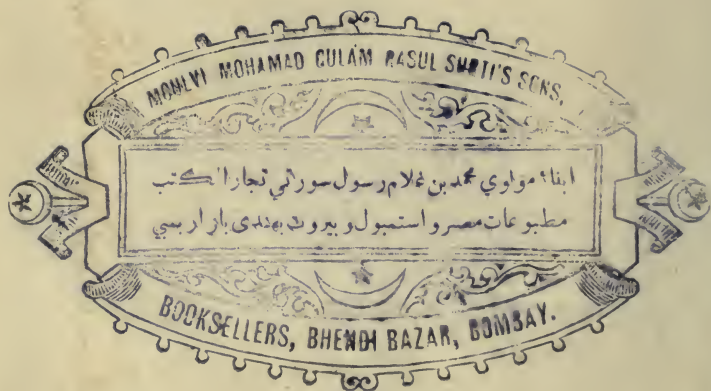 MOULVI MOHAMAD GULAM RASUL SURTI'S SONS,
ابناء مولوي محمد بن غلام رسول سورتي تجار الكتب
مطبوعات مصر و استمبول و بيروت بهندى بازار بمبي
BOOKSELLERS, BHENDI BAZAR, BOMBAY.